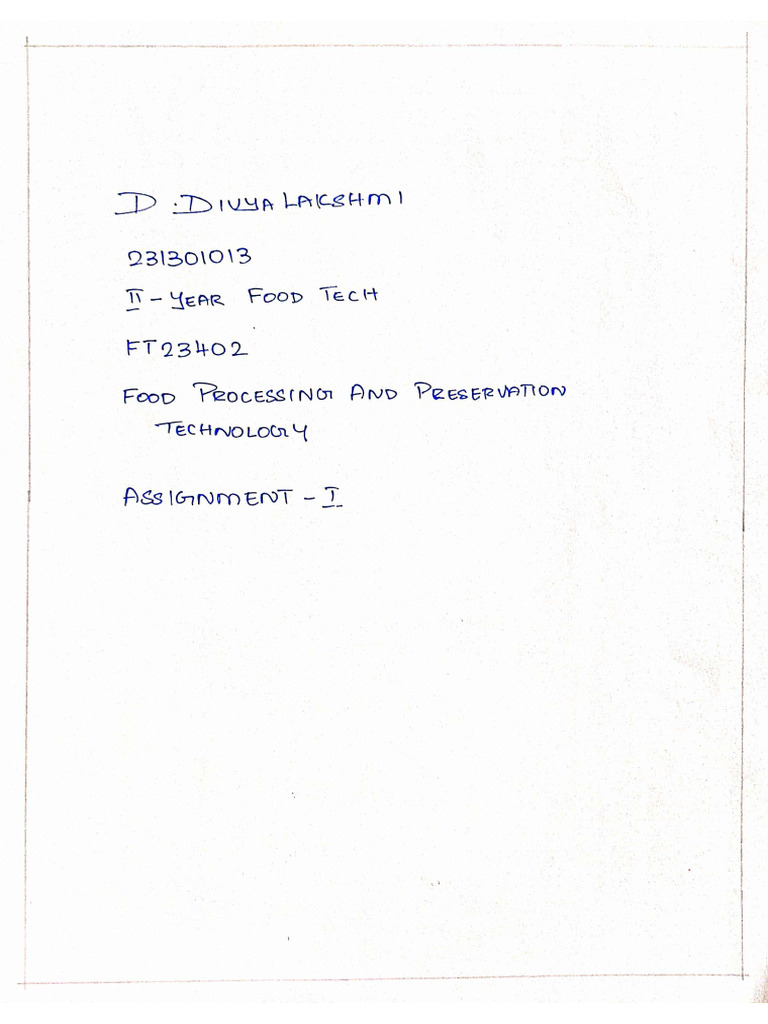 D. DIVYA LAKSHMI
231301013
II - YEAR FOOD TECH
FT23402
FOOD PROCESSING AND PRESERVATION
TECHNOLOGY
ASSIGNMENT - I